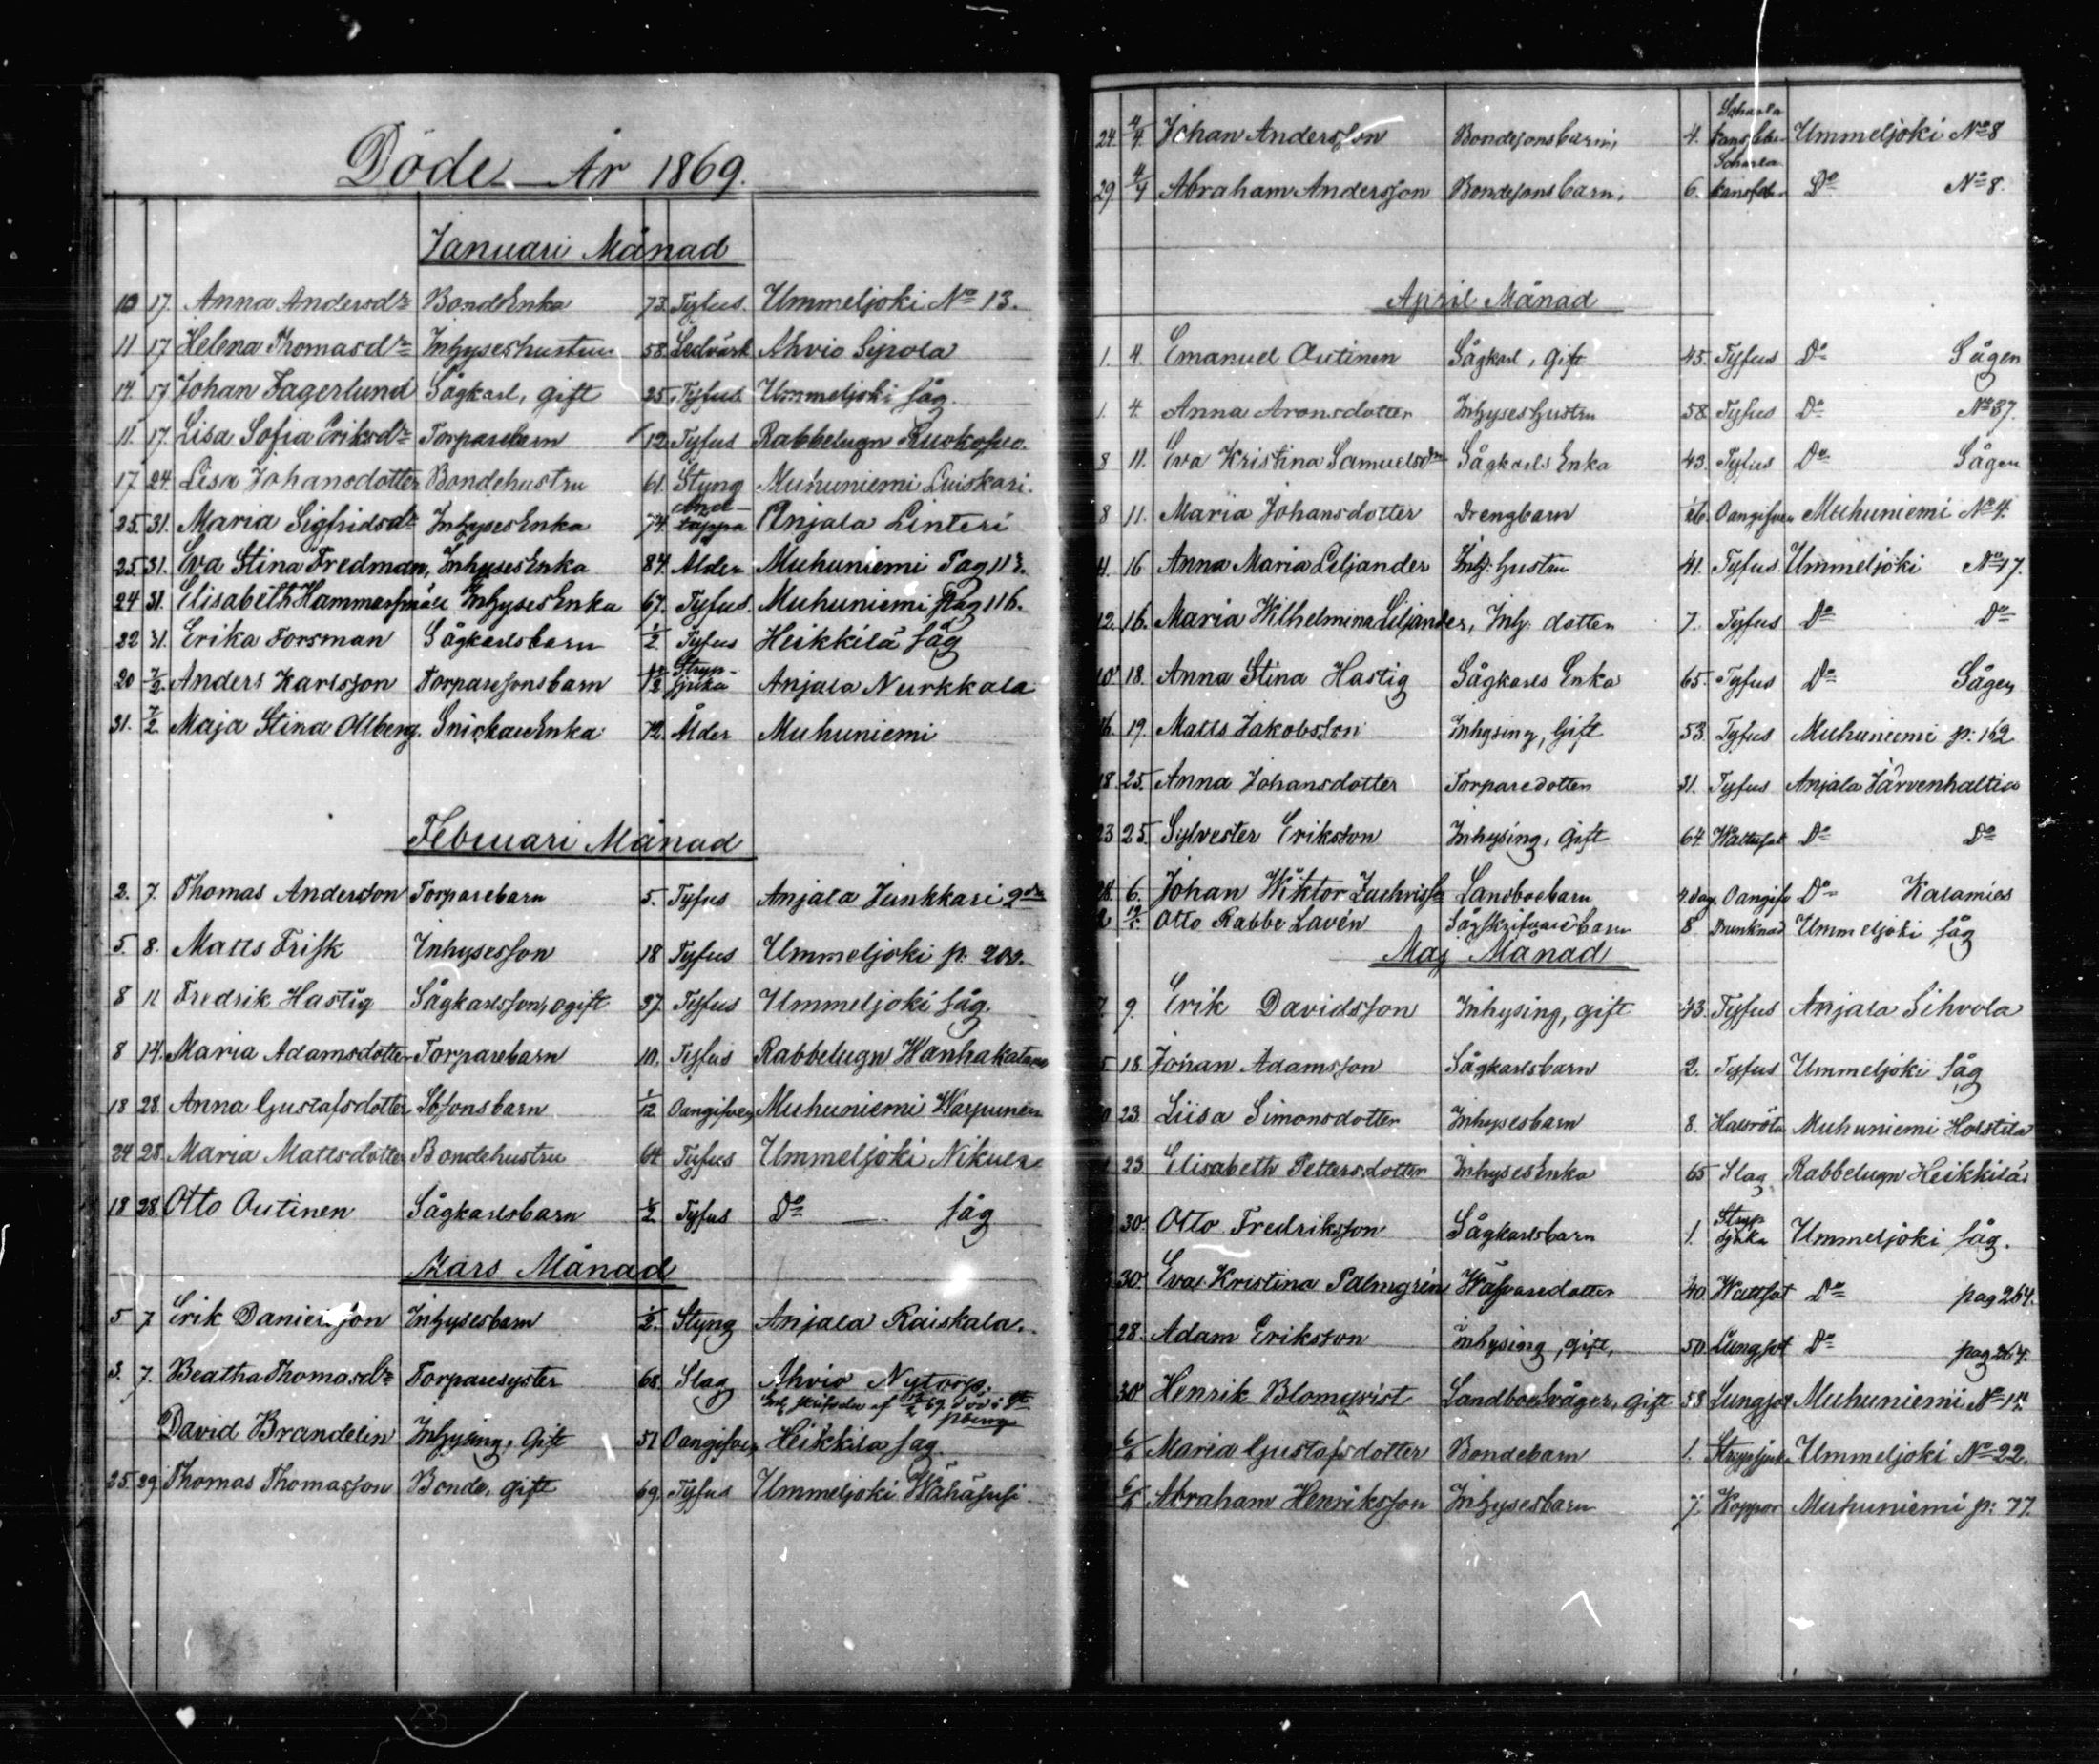 Döde År 1869.
Januari Månad
10 17. Anna Andersdr Bondenka 73. Tyfus. Ummeljoki No 13.
11 17 Helena Thomasdr Inhyseshustru 58. Ledvärk Ahvio Sipola
14. 17 Johan Fagerlund Sågkarl, gift 25. Tyfus. Ummeljoki såg.
11. 17. Lisa Sofia Eriksdr Torparebarn 12. Tyfus Rabbelugn
17 24. Lisa Johansdotter Bondehustru 61. Styng Muhuniemi Luiskari.
25. 31. Maria Sigfridsdr Inhysesenka 74. Andtäppa Anjala Linteri
25. 31. Eva Stina Fredman, Inhysesenka 84. Ålder Muhuniemi Pag 113.
24 31. Elisabeth Inhysesenka 67. Tyfus. Muhuniemi Pag 116.
22 31. Erika Forsman Sågkarlsbarn 1/2 Tyfus Heikkilä såg
20 7/2. Anders Karlsson Torparesonsbarn Strypsjuka Anjala Nurkkala
31. 7/2 Maja Stina Alberg. Snickareenka 72. Ålder Muhuniemi
Februari Månad
2. 7. Thomas Andersson Torparebarn 5. Tyfus Anjala Junkkari
5. 8. Matts Frisk Inhysesson 18 Tyfus Ummeljoki p.
8 11 Fredrik Hastig Sågkarlsson, ogift 37 Tyfus Ummeljoki såg.
8 14. Maria Adamsdotter Torparebarn 10. Tyfus Rabbelugn
18 28. Anna Gustafsdotter 1/12 Oangifven Muhuniemi
24 28. Maria Mattsdotter Bondehustru 64 Tyfus Ummeljoki Nikula
18 28. Otto Outinen Sågkarlsbarn 1/2 Tyfus Do såg
Mars Månad
5 7 Erik Danielsson Inhysesbarn 1/2. Styng Anjala Raiskala.
3. 7. Beatha Thomasdr Torparesyster 68. Slag Ahvio Nytorp.
David Brandelin Inhysing, Gift 51 Oangifven Heikkilä såg.
25. 29 Thomas Thomasson Bonde, gift 69. Tyfus Ummeljoki Wähäsusi
24. 4/4. Johan Andersson Bondesonsbarn, 4. Scharlakansfeber Ummeljoki No 8
29 4/4 Abraham Andersson Bondesonsbarn, 6. Scharlakansfeber Do No 8.
April Månad
1. 4. Emanuel Outinen Sågkarl, gift 45. Tyfus Do Sågen
1. 4. Anna Aronsdotter Inhyseshustru 58. Tyfus Do No 37.
8 11. Eva Kristina Samuelsdr Sågkarls Enka 43. Tyfus Do Sågen
8 11. Maria Johansdotter Drengbarn Oangifven Muhuniemi No 4.
11. 16 Anna Maria Liljander Inh. hustru 41. Tyfus. Ummeljoki No 17.
12. 16. Maria Wilhelmina Liljander, Inh. dotter 7. Tyfus Do Do
10 18. Anna Stina Hastig Sågkarls Enka 65. Tyfus Do Sågen
16. 19. Matts Jakobsson Inhysing, Gift 53. Tyfus Muhuniemi p. 162
18. 25. Anna Johansdotter Torparedotter 31. Tyfus Anjala Järvenhaltia
23 25. Sylvester Eriksson Inhysing, Gift 64 Wattusot Do Do
28. 6. Johan Wiktor Landboebarn 4. dag. Oangifv Do Kalamies
Otto Rabbe Lavén Sågskrifvarebarn 8 Drunknad Ummeljoki såg
Maj Månad
7. 9. Erik Davidsson Inhysing, gift 43. Tyfus Anjala Sihvola
5 18. Johan Adamsson Sågkarlsbarn 2. Tyfus Ummeljoki såg
23 Liisa Simonsdotter Inhysesbarn 8. Halsröta Muhuniemi Holstila
23. Elisabeth Pettersdotter Inhysesenka 65 Slag Rabbelugn Heikkilä
30. Otto Fredriksson Sågkarlsbarn 1. Strypsjuka Ummeljoki såg.
30. Eva Kristina Palmgrén Wäfvaredotter 40. Wattsot Do pag 264.
28. Adam Eriksson inhysing, gift, 50. Lungsot Do pag 264.
30. Henrik Blomqvist Landboesvåger, gift 58 Lungsot Muhuniemi No
6/6 Maria Gustafsdotter Bondebarn 1. Strypsjuka Ummeljoki No 22.
6/6 Abraham Henriksson Inhysesbarn 7. Koppor Muhuniemi p. 77.